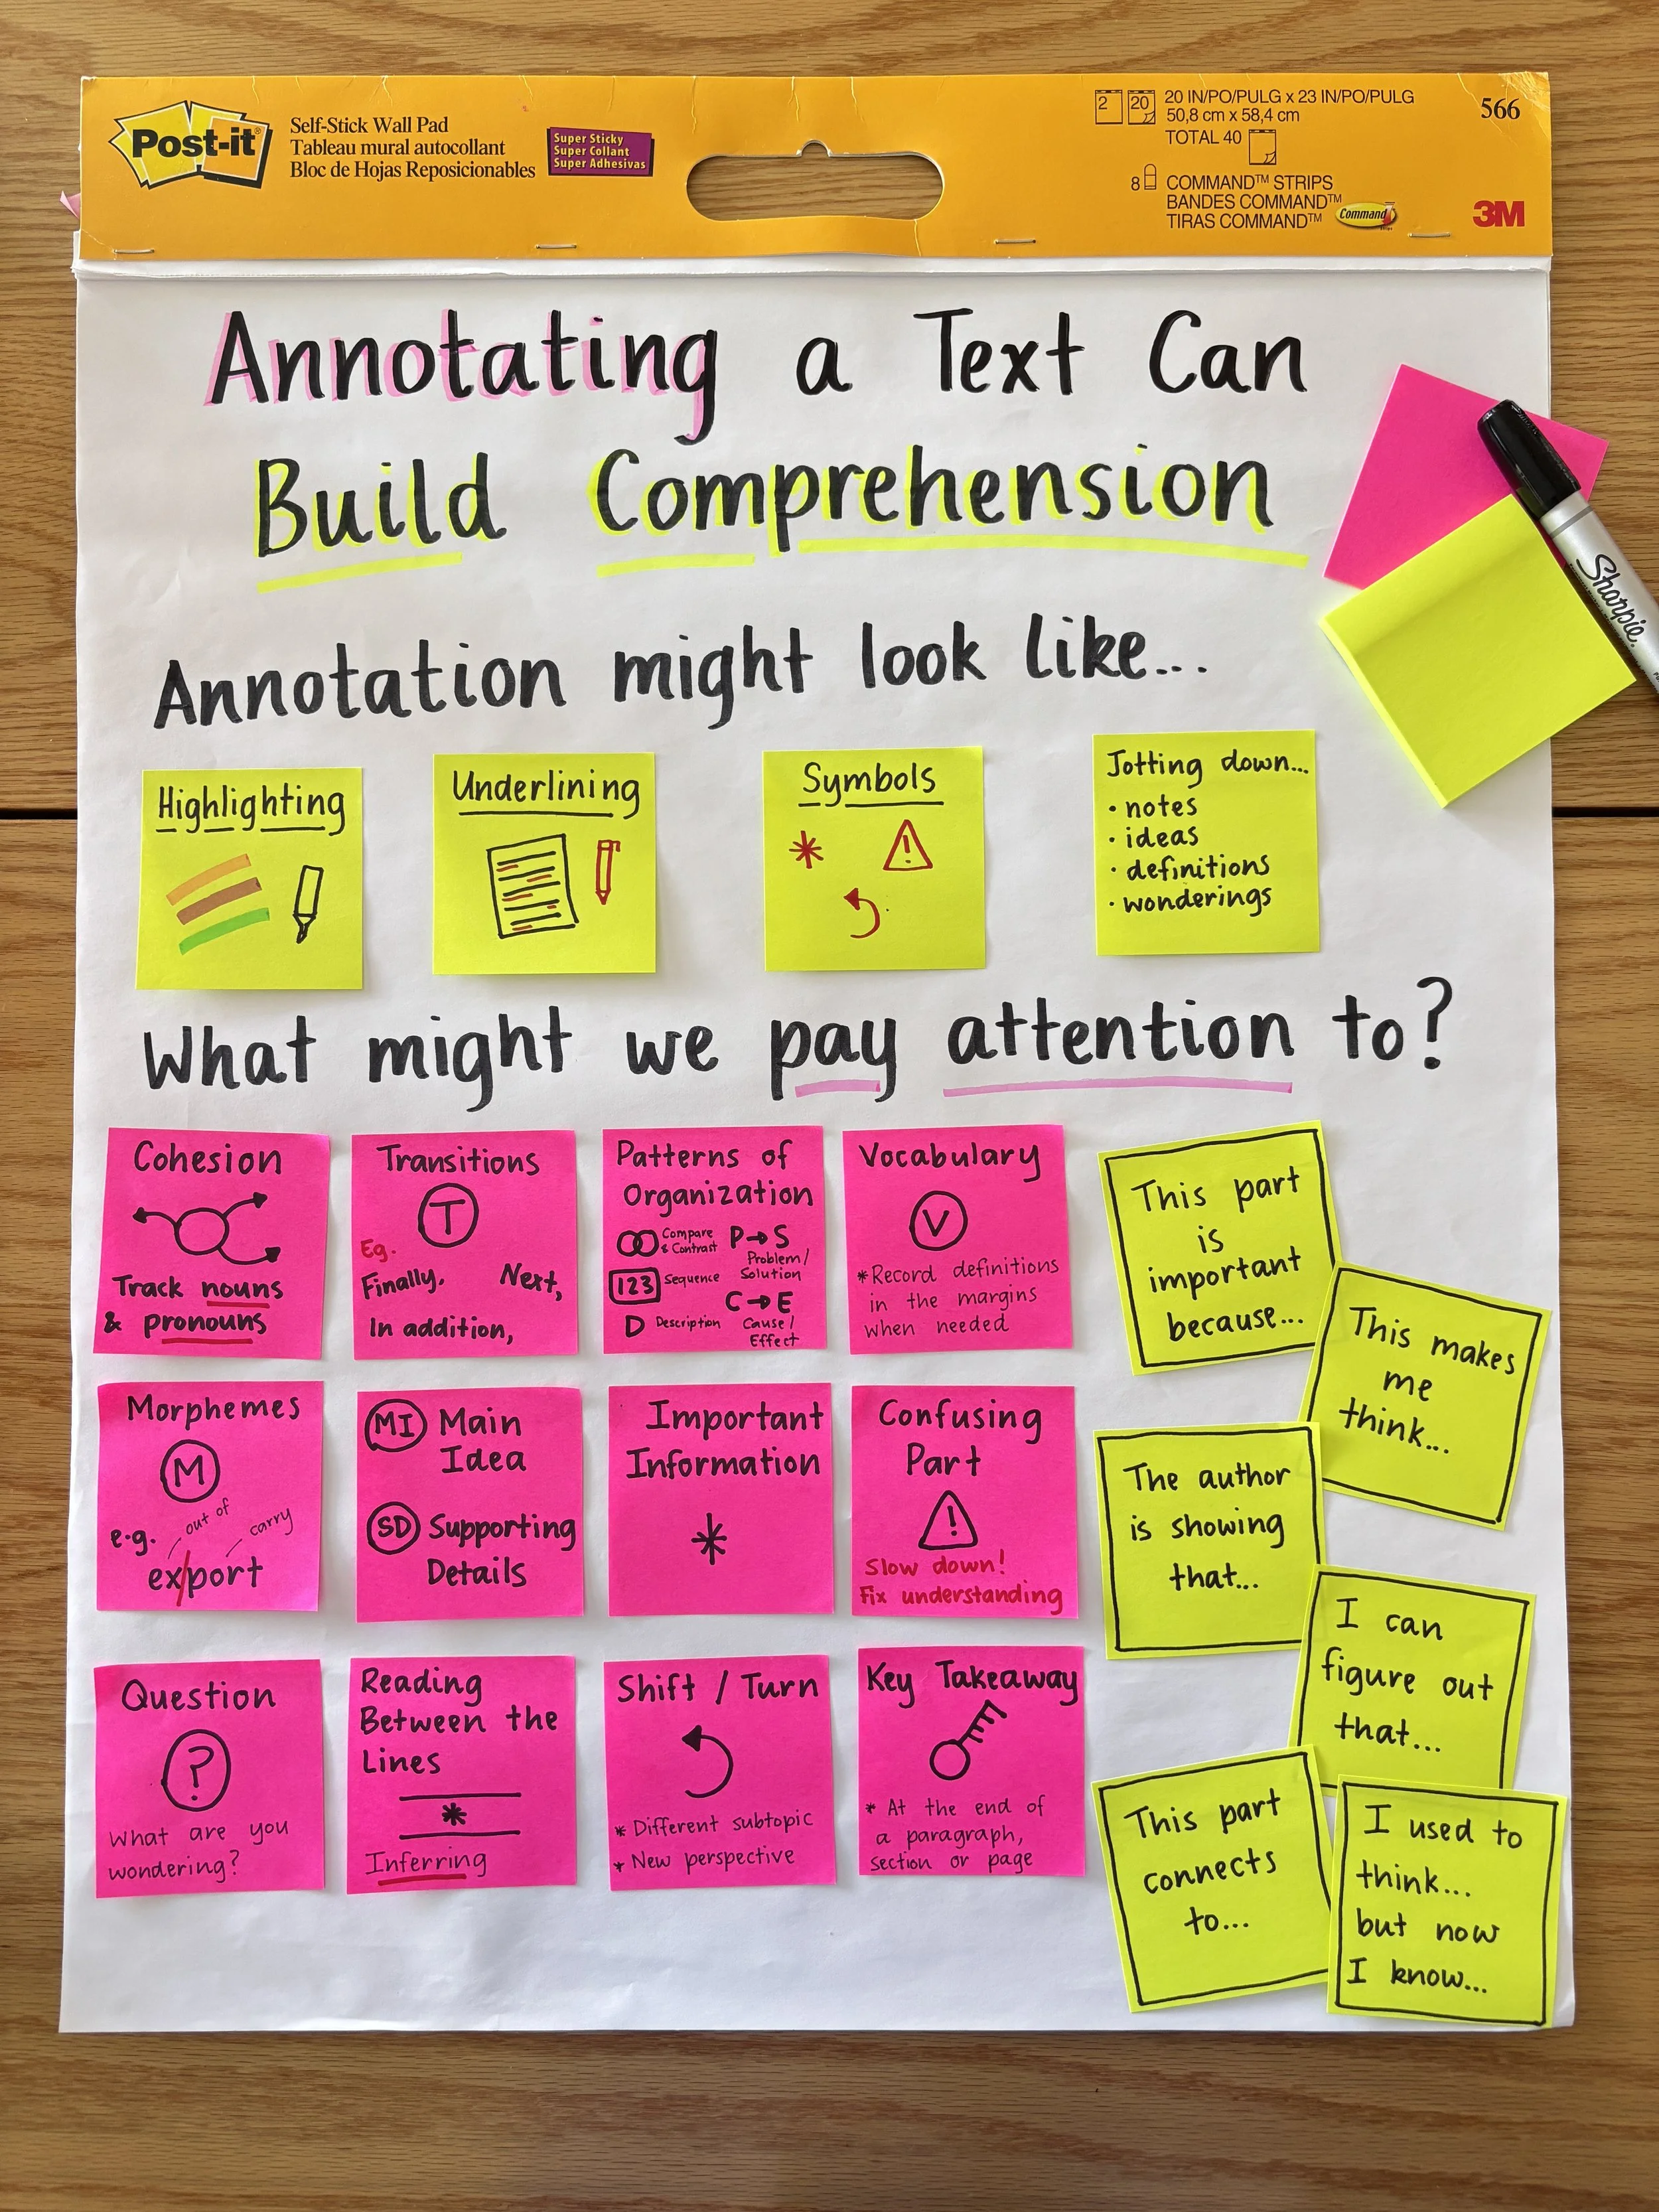 Post-it®
Self-Stick Wall Pad
Tableau mural autocollant
Bloc de Hojas Reposicionables
Super Sticky
Super Collant
Super Adhesivas
2 20
20 IN/PO/PULG x 23 IN/PO/PULG
50,8 cm x 58,4 cm
TOTAL 40
8 COMMAND™ STRIPS
BANDES COMMAND™
TIRAS COMMAND™
Command
566
3M
Annotating a Text Can
Build Comprehension
Sharpie.
Annotation might look like...
Highlighting
Underlining
Symbols
* !
Jotting down...
• notes
• ideas
• definitions
• wonderings
What might we pay attention to?
Cohesion
Track nouns
& pronouns
Transitions
T
Eg.
Finally, Next,
In addition,
Patterns of
Organization
Compare
& Contrast
P→S
Problem/
Solution
123 Sequence
C→E
Cause/
Effect
D Description
Vocabulary
V
*Record definitions
in the margins
when needed
This part
is
important
because...
This makes
me
think...
Morphemes
M
e.g.
out of
carry
ex/port
MI Main
Idea
SD Supporting
Details
Important
Information
*
Confusing
Part
!
Slow down!
Fix understanding
The author
is showing
that...
I can
figure out
that...
Question
?
What are you
wondering?
Reading
Between the
Lines
*
Inferring
Shift / Turn
* Different subtopic
* New perspective
Key Takeaway
* At the end of
a paragraph,
section or page
This part
connects
to...
I used to
think...
but now
I know...